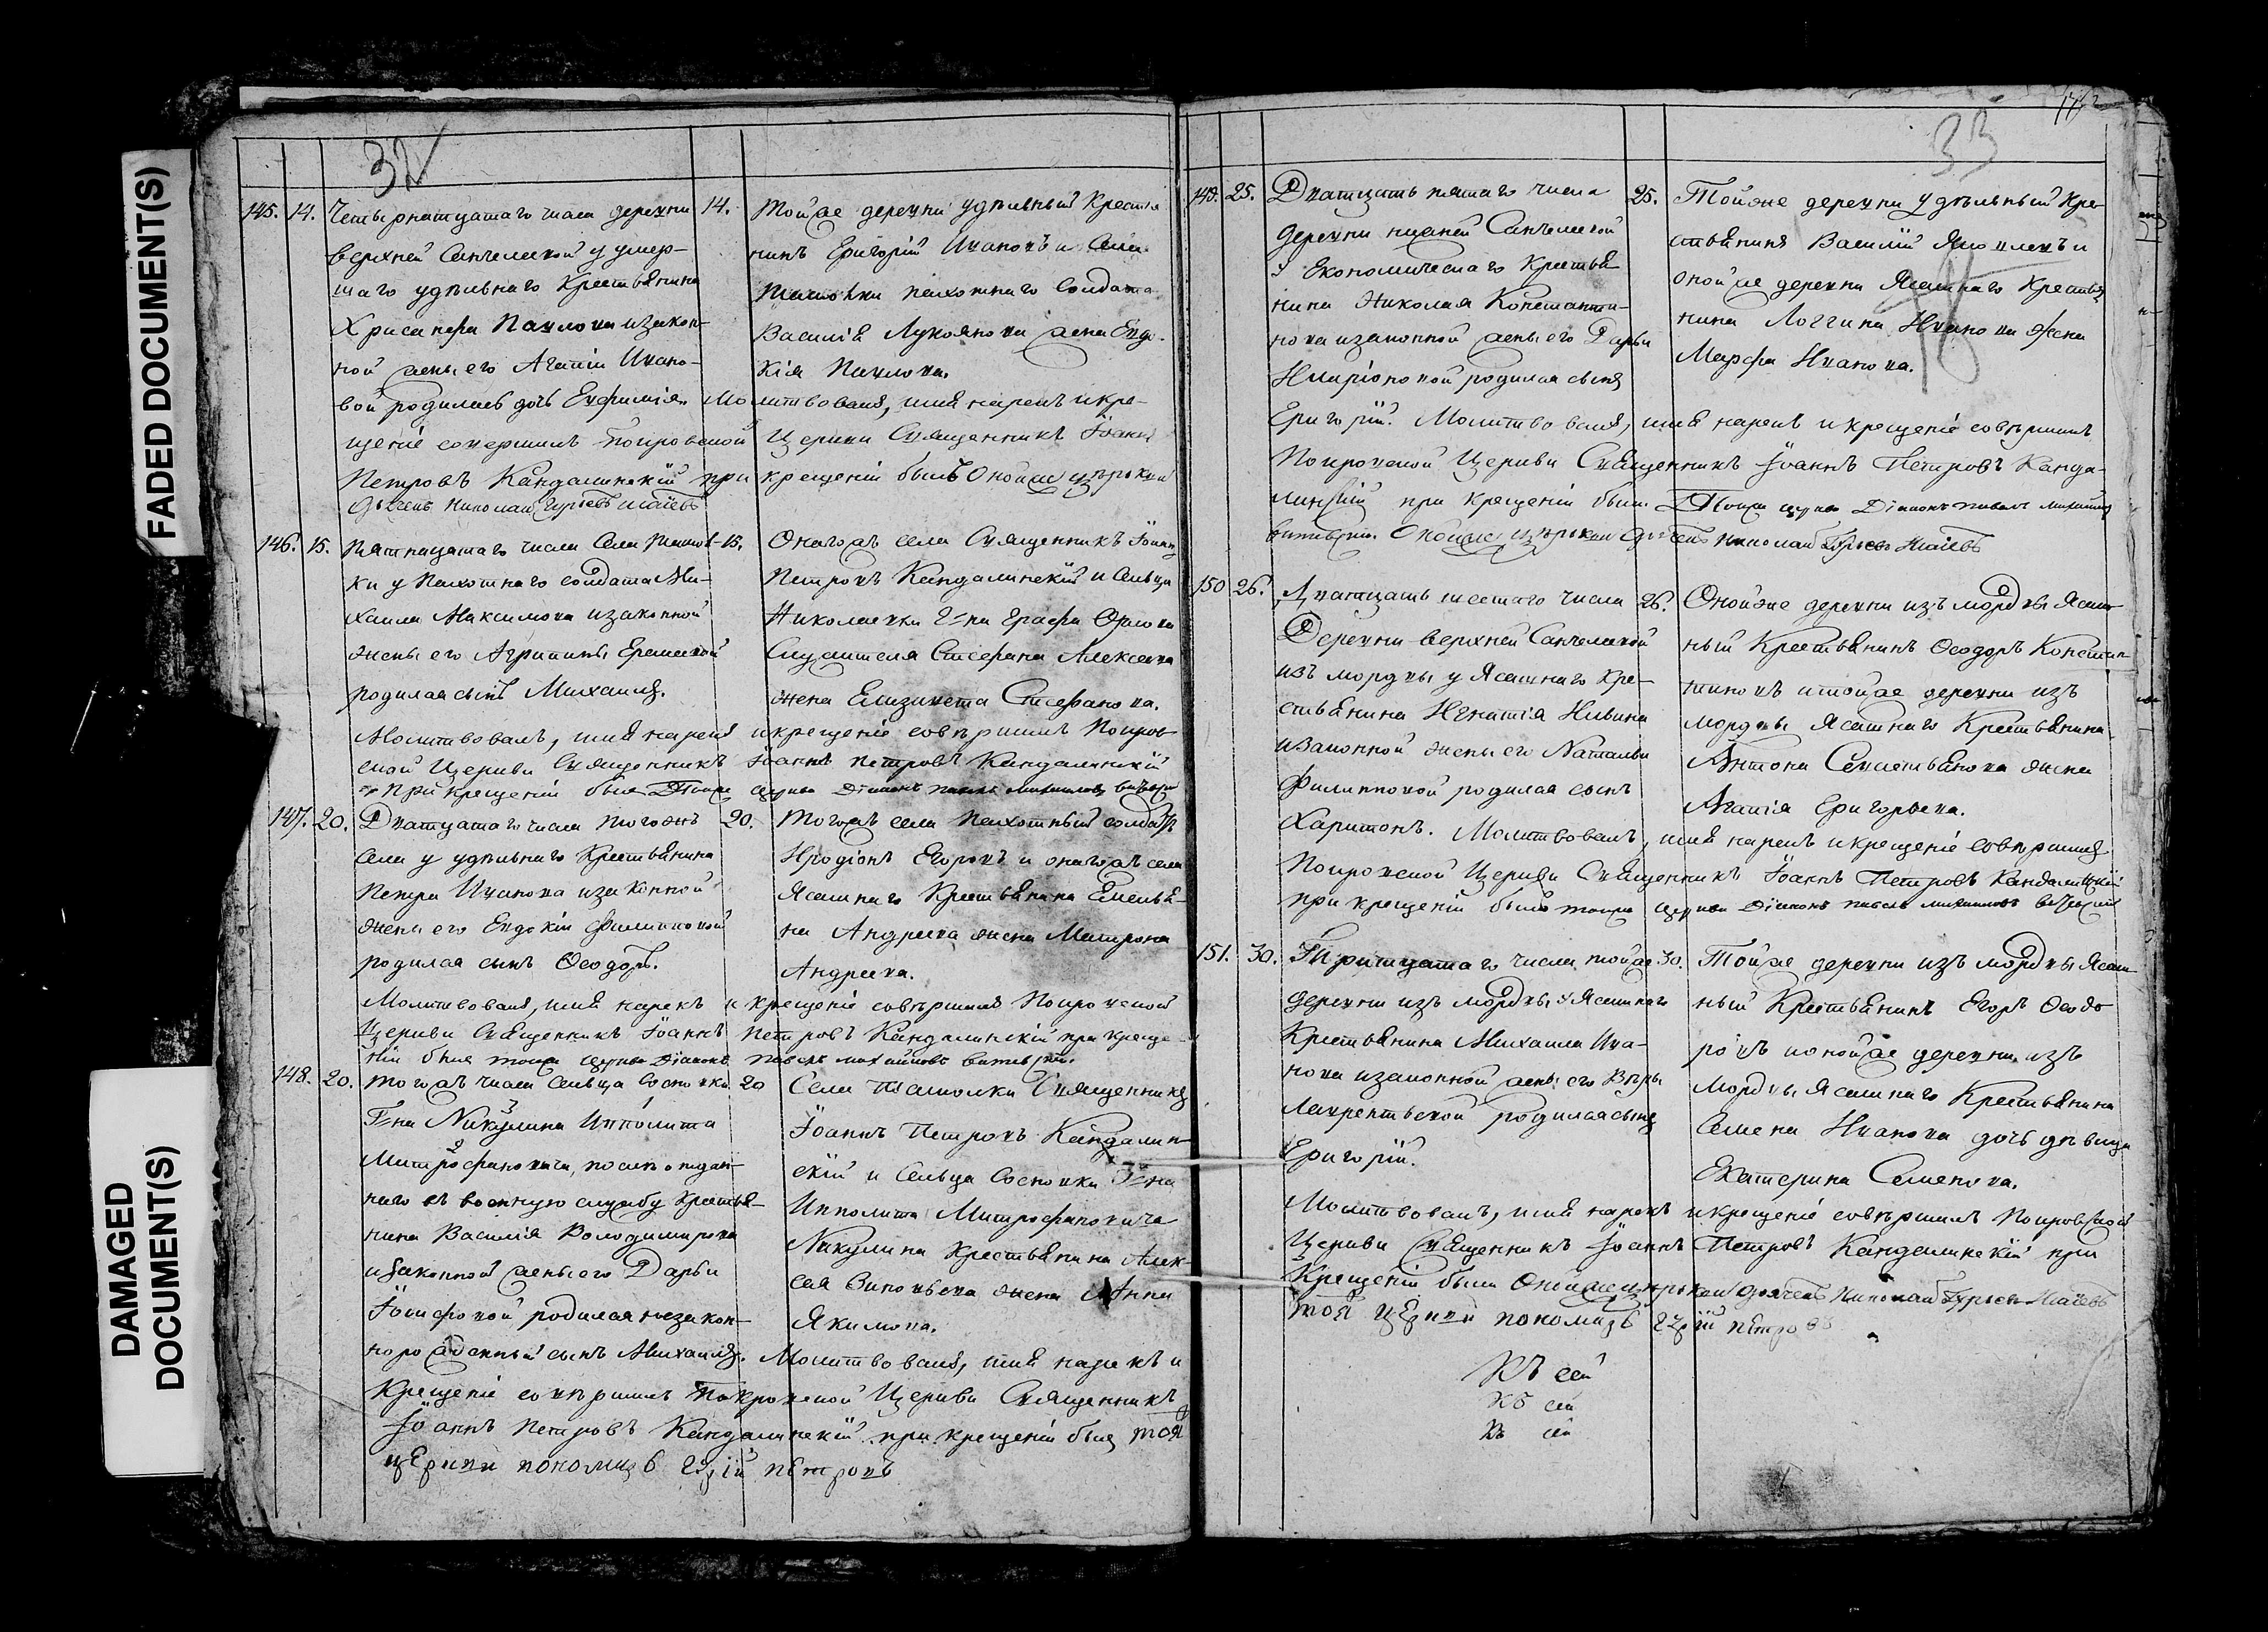 FADED DOCUMENT(S)
DAMAGED
DOCUMENT(S)
32
145. 14. Четырнатцатаго числа деревни
верхней Санчелеевой у умер-
шаго удѣльнаго Крестьянина
Хрисанфа Павлова изакон-
ной жены его Агапіи Ивано-
вой родилась дочь Евфимія.
14. Тойже деревни удѣльный Крестья
нинъ Григорій Ивановъ и Села
пахотнаго Солдата
Василія Лукоянова жена Евдо-
кія Павлова.
Молитвовалъ, имя нарекъ и кре-
щеніе совершилъ Покровской Церкви Священникъ Іоаннъ
Петровъ Кандалинскій при крещеніи былъ Онойже церкви
Николай Гурьевъ
146. 15. Пятнатцатаго числа Села Ташол-
ки у Пахотнаго солдата Ми-
хаила Максимова изаконной
жены его Агрипины Еремеевой
родился сынъ Михаилъ.
15. Онагожъ села Священникъ Іоаннъ
Петровъ Кандалинскій и Сельца
Николаевки Г-на Графа Орлова
Служителя Стефана Алексеева
жена Елизавета Стефанова.
Молитвовалъ, имя нарекъ и крещеніе совѣршилъ Покров-
ской Церкви Священникъ Іоаннъ Петровъ Кандалинскій
при крещеніи былъ Тойже церкви Діаконъ Павелъ Михайловъ
147. 20. Дватцатаго числа тогожъ
села у удѣльнаго Крестьянина
Петра Иванова изаконной
жены его Евдокіи Филиповой
родился сынъ Ѳеодоръ.
20. Тогожъ села Пахотный солдатъ
Иродіонъ Егоровъ и онагожъ села
Ясашнаго Крестьянина Емелья-
на Андреева жена Матрона
Андреева.
Молитвовалъ, имя нарекъ и крещеніе совѣршилъ Покровской
Церкви Священникъ Іоаннъ Петровъ Кандалинскій при креще-
ніи былъ тойже церкви Діаконъ Павелъ Михайловъ
148. 20. Тогожъ числа Сельца Сосновки
Г-на Никулина Ипполита
Митрофановича, послѣ отдан-
наго въ военную службу крестья-
нина Василія Володимирова
изаконной жены его Дарьи
Іосифовой родился незакон-
норожденный сынъ Михаилъ.
20 Села Ташолки Священникъ
Іоаннъ Петровъ Кандалин-
скій и Сельца Сосновки Г-на
Ипполита Митрофановича
Никулина Крестьянина Алек-
сея Зиновьева жена Анна
Якимова.
Молитвовалъ, имя нарекъ и
Крещеніе совѣршилъ Покровской Церкви Священникъ
Іоаннъ Петровъ Кандалинскій при крещеніи былъ той
церкви пономарь Петровъ
33
149. 25. Дватцать пятаго числа
деревни нижней Санчелеевой
у Економическаго Крестья
нина Николая Константи-
нова изаконной жены его Дарьи
Иларіоновой родился сынъ
Григорій.
25. Тойже деревни удѣльный Кре-
стьянинъ Василій Яковлевъ и
онойже деревни Ясашнаго Крестья
нина Логгина Иванова жена
Марфа Иванова.
Молитвовалъ, имя нарекъ и крещеніе совѣршилъ
Покровской Церкви Священникъ Іоаннъ Петровъ Канда-
линскій при крещеніи были Тойже церкви Діаконъ Павелъ Михайловъ
Онойже церкви Николай Гурьевъ
150 26. Дватцать шестаго числа
Деревни верхней Санчелеевой
изъ мордвы у Ясашнаго Кре-
стьянина Игнатія Ильина
изаконной жены его Натальи
Филипповой родился сынъ
Харитонъ.
26. Онойже деревни изъ мордвы Ясаш-
ный Крестьянинъ Ѳеодоръ Констан-
тиновъ и тойже деревни изъ
мордвы Ясашнаго Крестьянина
Антона Севастьянова жена
Агапія Григорьева.
Молитвовалъ, имя нарекъ и крещеніе совѣршилъ
Покровской Церкви Священникъ Іоаннъ Петровъ Кандалинскій
при крещеніи былъ тойже церкви Діаконъ Павелъ Михайловъ
151. 30. Тритцатаго числа тойже
деревни изъ мордвы у Ясашнаго
Крестьянина Михаила Ива-
нова изаконной жены его Вѣры
Лаврентьевой родился сынъ
Григорій.
30. Тойже деревни изъ мордвы Ясаш-
ный Крестьянинъ Егоръ Ѳеодо
ровъ и онойже деревни изъ
Мордвы Ясашнаго Крестьянина
Семена Иванова дочь дѣвица
Екатерина Семенова.
Молитвовалъ, имя нарекъ и крещеніе совѣршилъ Покровской
Церкви Священникъ Іоаннъ Петровъ Кандалинскій при
Крещеніи были Онойже церкви Николай Гурьевъ
той церкви пономарь Петровъ
Къ сей
Къ сей
Къ сей